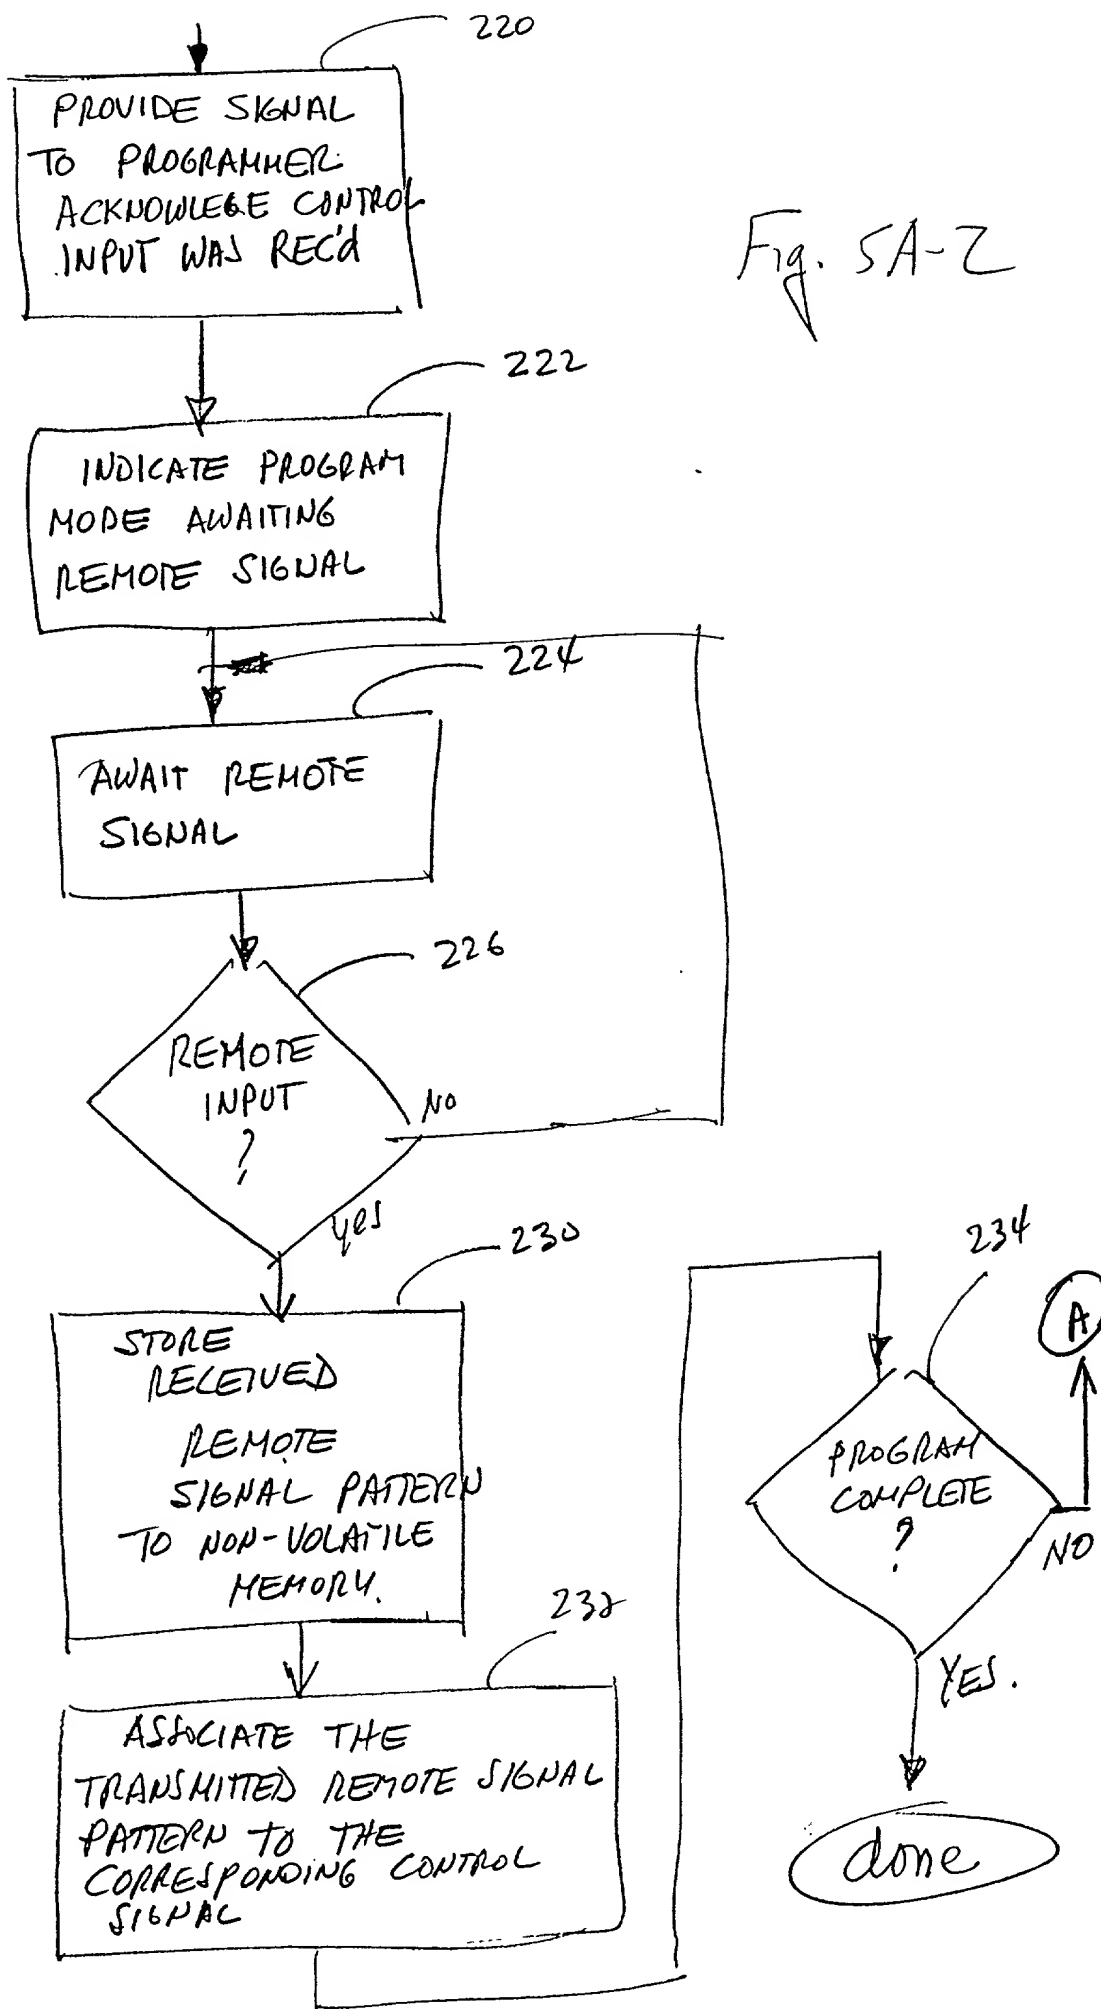 220
PROVIDE SIGNAL
TO PROGRAMMER
ACKNOWLEGE CONTROL
INPUT WAS REC'd
Fig. 5A-2
222
INDICATE PROGRAM
MODE AWAITING
REMOTE SIGNAL
224
AWAIT REMOTE
SIGNAL
226
REMOTE
INPUT
?
NO
yes
230
STORE
RECEIVED
REMOTE
SIGNAL PATTERN
TO NON-VOLATILE
MEMORY.
232
ASSOCIATE THE
TRANSMITTED REMOTE SIGNAL
PATTERN TO THE
CORRESPONDING CONTROL
SIGNAL
234
A
PROGRAM
COMPLETE
?
NO
YES.
done